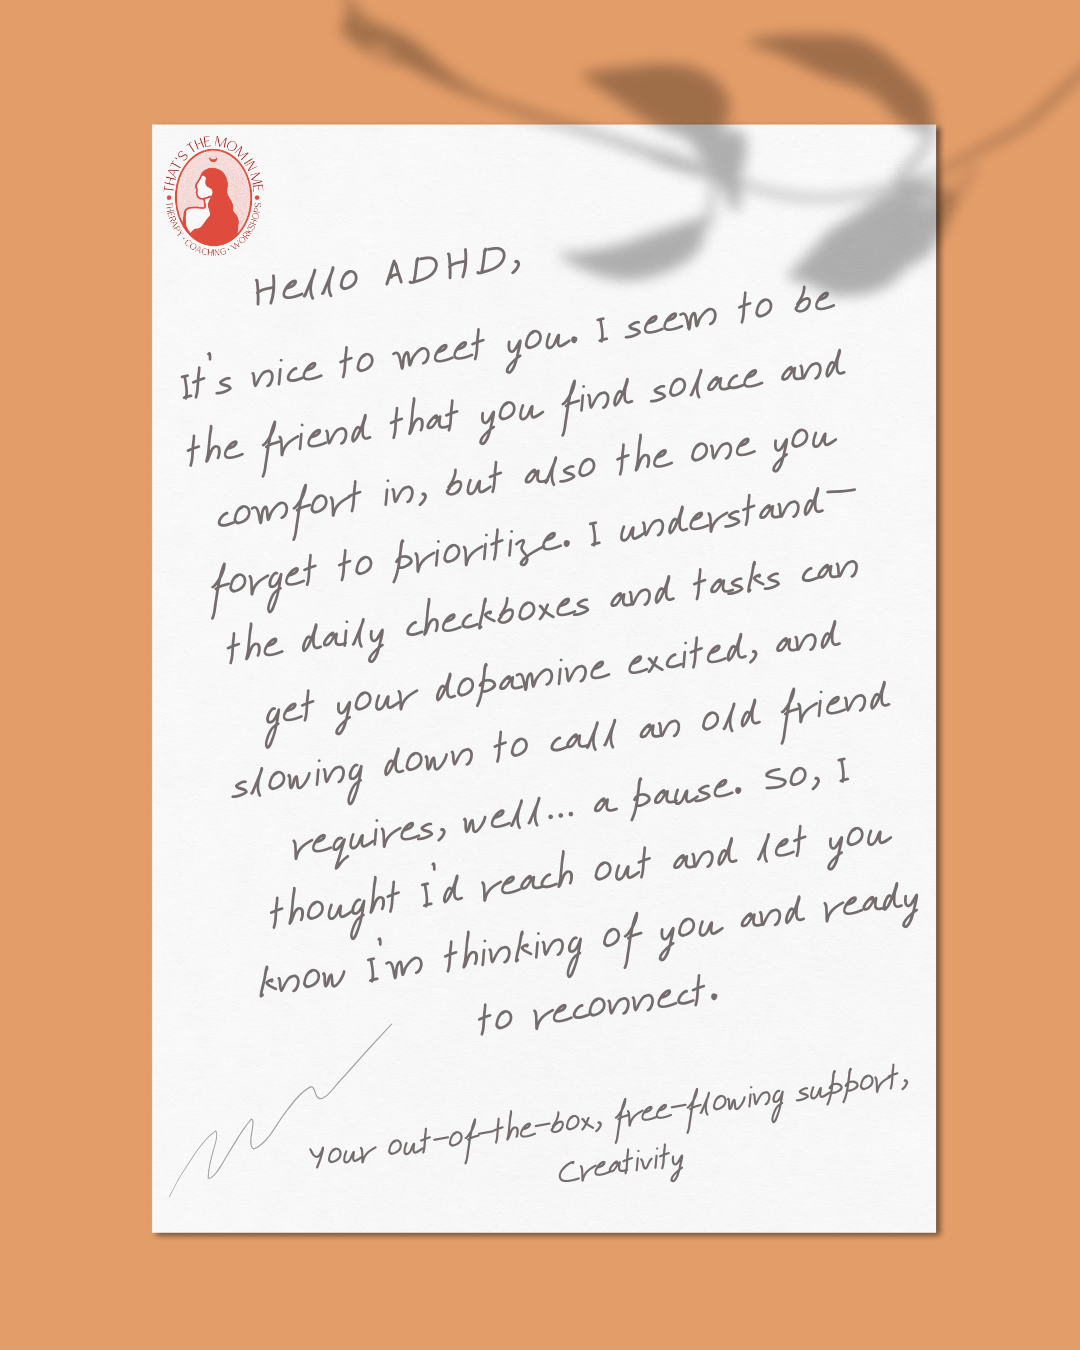 THAT'S THE MOM IN ME
THERAPY · COACHING · WORKSHOPS
Hello ADHD,
It's nice to meet you. I seem to be
the friend that you find solace and
comfort in, but also the one you
forget to prioritize. I understand—
the daily checkboxes and tasks can
get your dopamine excited, and
slowing down to call an old friend
requires, well... a pause. So, I
thought I'd reach out and let you
know I'm thinking of you and ready
to reconnect.
Your out-of-the-box, free-flowing support,
Creativity